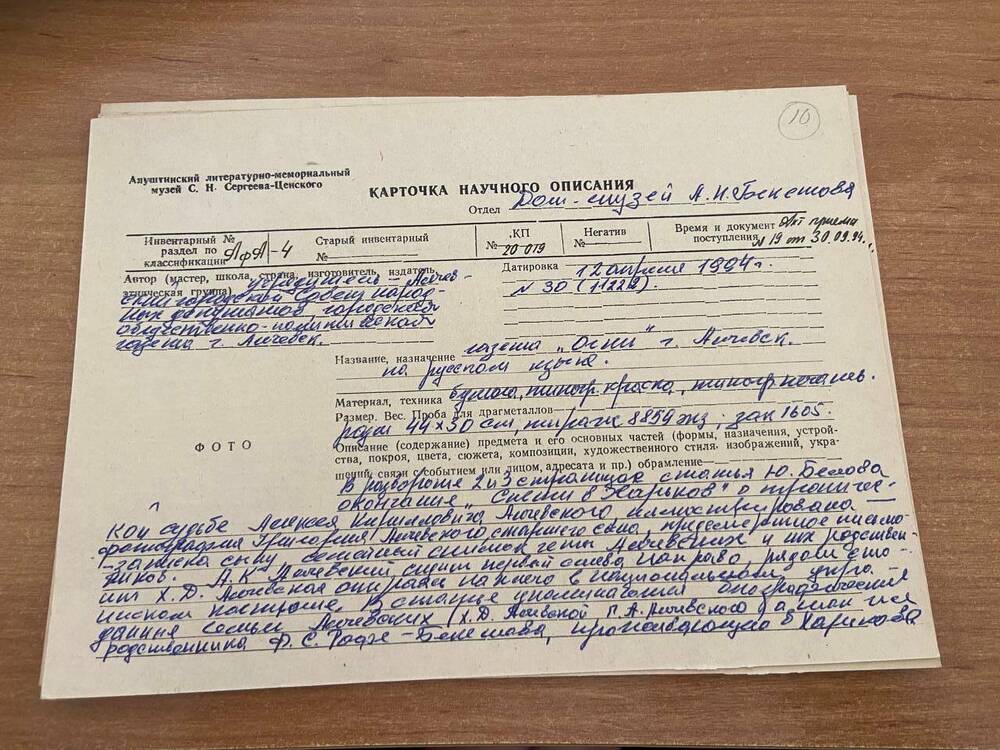 10
Алуштинский литературно-мемориальный
музей С. Н. Сергеева-Ценского
КАРТОЧКА НАУЧНОГО ОПИСАНИЯ
Отдел Дом-музей А.Н.Бекетова
Инвентарный №
раздел по
классификации АфА-4
Старый инвентарный
№
КП
№ 20 019
Негатив
№
Время и документ Акт приема
поступления N 19 от 30.09.94г.
Автор (мастер, школа, страна, изготовитель, издатель,
этническая группа) учредитель - Алчев-
ский городской Совет народ-
ных депутатов, городская
общественно-политическая
газета г. Алчевск.
Датировка 12 апреля 1994г.
N 30 (11228).
Название, назначение газета "Огни" г. Алчевск.
на русском языке.
Материал, техника бумага, типогр. краска, типогр. печать.
Размер. Вес. Проба для драгметаллов
разм 44х30 см, тираж 8854 экз; зак 1605.
ФОТО
Описание (содержание) предмета и его основных частей (формы, назначения, устрой-
ства, покроя, цвета, сюжета, композиции, художественного стиля, изображений, укра-
шений, связи с событием или лицом, адресата и пр.) обрамление
В развороте 2 и 3 страницах статья Ю. Белова
окончание "Спешил в Харьков" о трагичес-
кой судьбе Алексея Кирилловича Алчевского, иллюстрирована
фотография Григория Алчевского старшего сына, предсмертное письмо
-записка сыну, семейный снимок четы Алчевских и их родствен-
ников. А.К. Алчевский сидит первый слева направо, рядом сто-
ит Х.Д. Алчевская опираясь на него в национальном укра-
инском костюме. В статье упоминаются биографические
данные семьи Алчевских (Х.Д. Алчевской Г.А. Алчевского а так же
родственника Ф.С. Бекетова, проживающего в Харькове